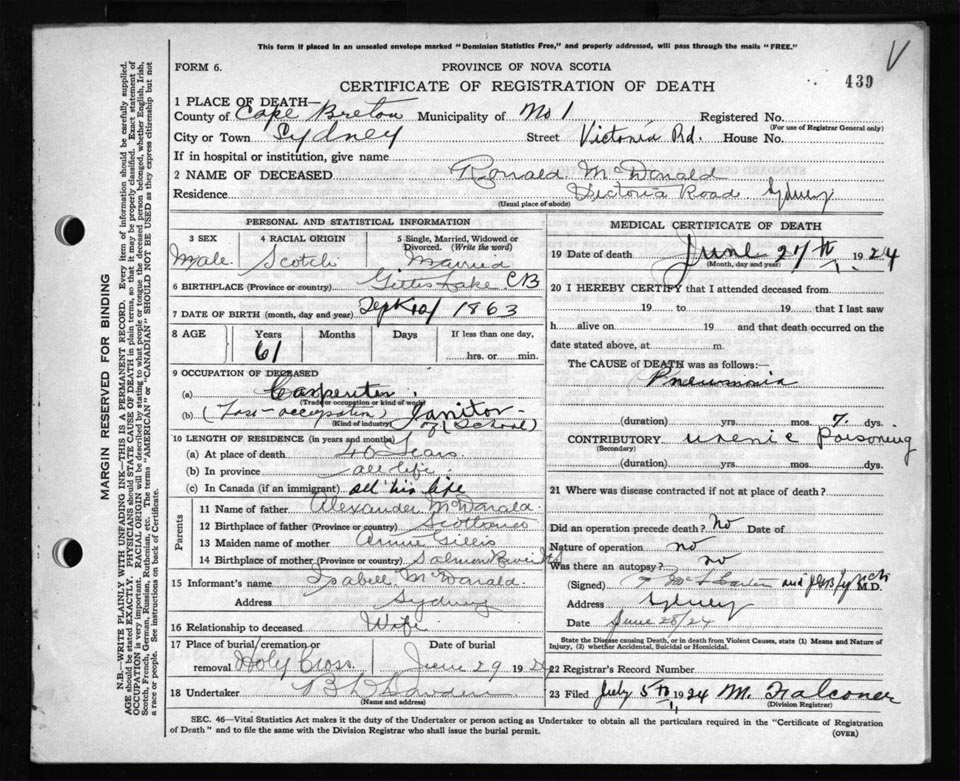 This form if placed in an unsealed envelope marked "Dominion Statistics Free," and properly addressed, will pass through the mails "FREE."
FORM 6.
PROVINCE OF NOVA SCOTIA
439
CERTIFICATE OF REGISTRATION OF DEATH
1 PLACE OF DEATH—
County of Cape Breton Municipality of No 1 Registered No.
(For use of Registrar General only)
City or Town Sydney Street Victoria Rd. House No.
If in hospital or institution, give name
2 NAME OF DECEASED Ronald McDonald
Residence Victoria Road Sydney
(Usual place of abode)
PERSONAL AND STATISTICAL INFORMATION
3 SEX
Male
4 RACIAL ORIGIN
Scotch
5 Single, Married, Widowed or Divorced. (Write the word)
Married
6 BIRTHPLACE (Province or country) Lake CB
7 DATE OF BIRTH (month, day and year) 1863
8 AGE
Years Months Days If less than one day,
61 hrs. or min.
9 OCCUPATION OF DECEASED
(a) Carpenter
(Trade or occupation or kind of work)
(b) (Last occupation) Janitor of (School)
(Kind of industry)
10 LENGTH OF RESIDENCE (in years and months)
(a) At place of death 40 Years
(b) In province all life
(c) In Canada (if an immigrant) all his life
Parents
11 Name of father Alexander McDonald
12 Birthplace of father (Province or country)
13 Maiden name of mother Annie Gillis
14 Birthplace of mother (Province or country) Salmon River
15 Informant's name Isabell McDonald
Address Sydney
16 Relationship to deceased Wife
17 Place of burial/cremation or removal Holy Cross
Date of burial
June 29 1924
18 Undertaker
(Name and address)
MEDICAL CERTIFICATE OF DEATH
19 Date of death June 27th 1924
(Month, day and year)
20 I HEREBY CERTIFY that I attended deceased from
19 to 19 that I last saw
h alive on 19 and that death occurred on the
date stated above, at m.
The CAUSE of DEATH was as follows:
Pneumonia
(duration) yrs. mos. 7 dys.
CONTRIBUTORY uremic Poisoning
(Secondary)
(duration) yrs. mos. dys.
21 Where was disease contracted if not at place of death?
Did an operation precede death? No Date of
Nature of operation no
Was there an autopsy? no
(Signed) M.D.
Address Sydney
Date June 28/24
State the Disease causing Death, or in death from Violent Causes, state (1) Means and Nature of Injury, (2) whether Accidental, Suicidal or Homicidal.
22 Registrar's Record Number
23 Filed July 5th 1924 M. Falconer
(Division Registrar)
SEC. 46—Vital Statistics Act makes it the duty of the Undertaker or person acting as Undertaker to obtain all the particulars required in the "Certificate of Registration
of Death" and to file the same with the Division Registrar who shall issue the burial permit.
(OVER)
MARGIN RESERVED FOR BINDING
N.B.—WRITE PLAINLY WITH UNFADING INK—THIS IS A PERMANENT RECORD. Every item of information should be carefully supplied.
AGE should be stated EXACTLY. PHYSICIANS should STATE CAUSE OF DEATH in plain terms, so that it may be properly classified. Exact statement of
OCCUPATION is very important. RACIAL ORIGIN will be described by stating to what people or tongue the deceased person belonged, whether English, Irish,
Scotch, French, German, Russian, Ruthenian, etc. The terms "AMERICAN" or "CANADIAN" SHOULD NOT BE USED as they express citizenship but not
a race or people. See instructions on back of Certificate.